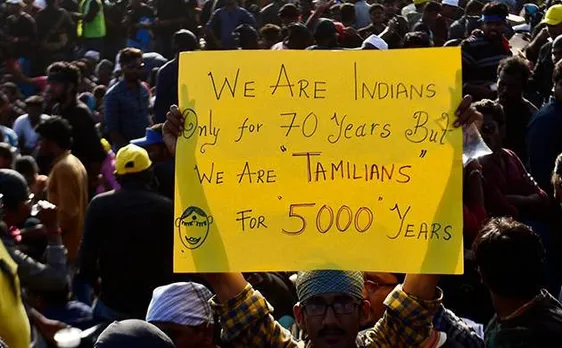 We Are Indians
Only for 70 Years But
We Are "Tamilians"
For "5000" Years